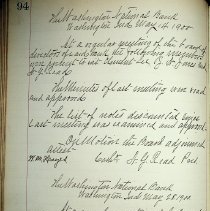 94
The Washington National Bank
Washington Ind May 14 1900
At a regular meeting of the board of
directors the following
were present
J. G. Read
The Minutes of last meeting were read
and approved
The list of notes discounted since
last meeting was examined and approved.
On Motion the Board adjourned
attest
J. G. Read Pres
The Washington National Bank
Washington Ind May 28 1900